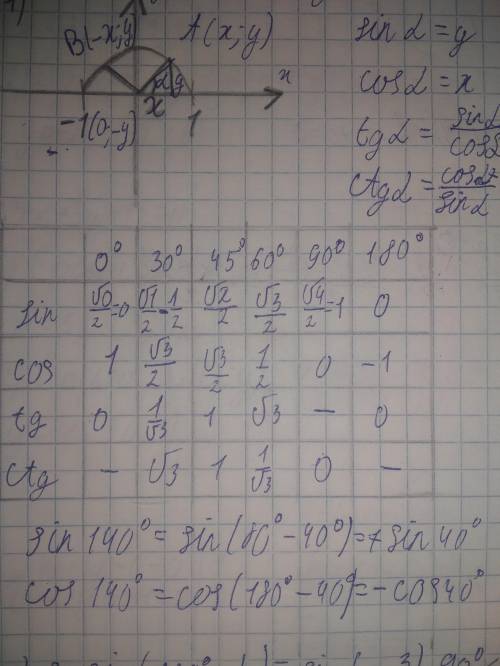 1)
B(-x;y) A(x;y) sin α = y
α y x
x cos α = x
-1(0;-y) 1
tg α = sin α / cos α
ctg α = cos α / sin α
0° 30° 45° 60° 90° 180°
sin √0/2=0 √1/2=1/2 √2/2 √3/2 √4/2=1 0
cos 1 √3/2 √3/2 1/2 0 -1
tg 0 1/√3 1 √3 — 0
ctg — √3 1 1/√3 0 —
sin 140° = sin(180° - 40°) = + sin 40°
cos 140° = cos(180° - 40°) = - cos 40°